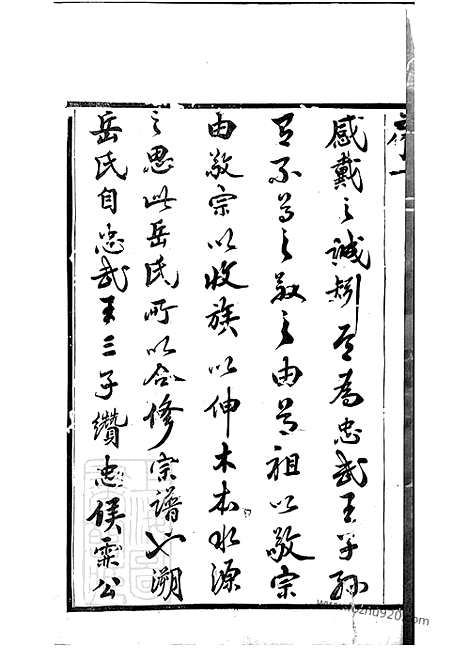 序一
感戴之誠矧其為忠武王子孫
有不尊之敬之由尊祖以敬宗
由敬宗以收族以伸木本水源
之思此岳氏所以合修宗譜也溯
岳氏自忠武王三子纘忠侯霖公
www.fozhu920.com